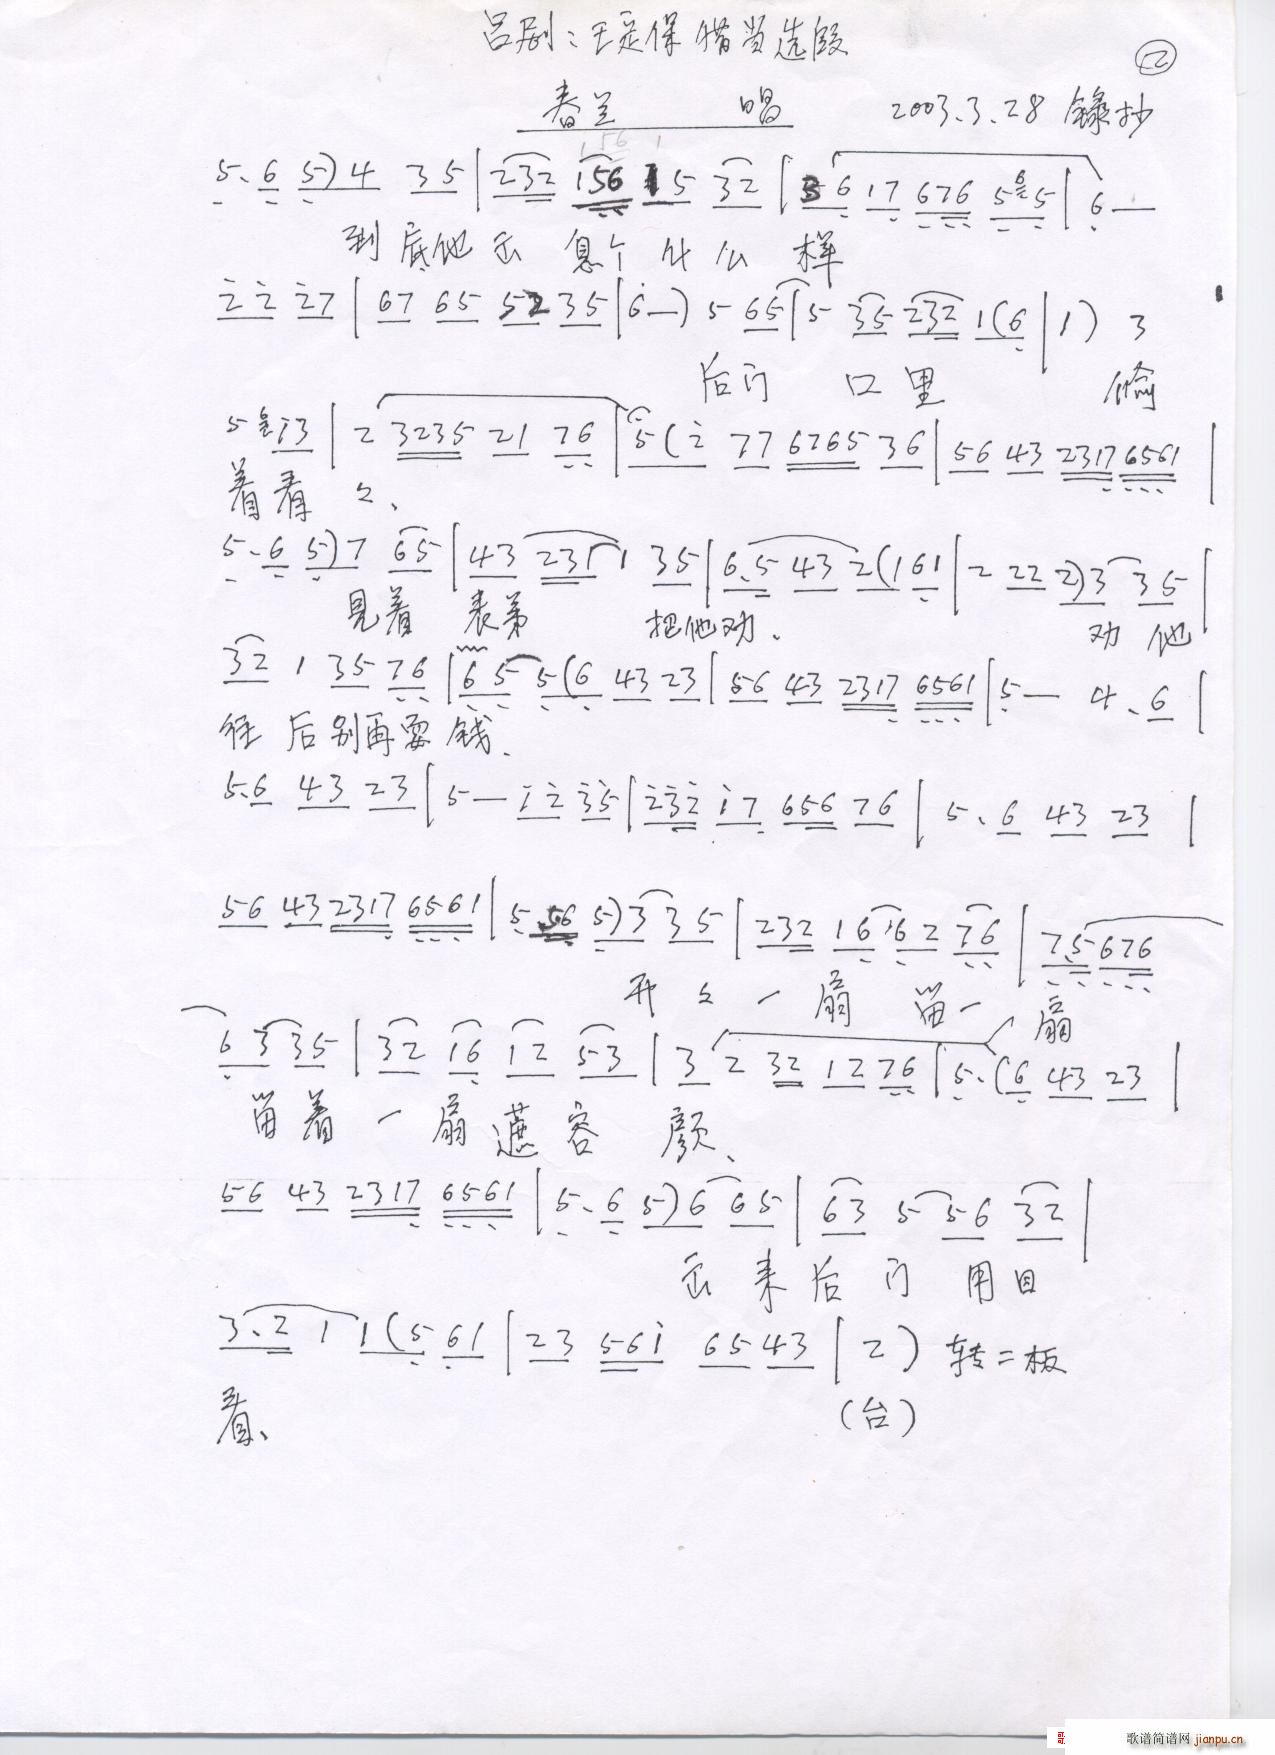 吕剧：王定保借当选段
②
春兰 唱 2003.3.28 錄抄
5. 6 5) 4 35 | 232 156 15 32 | 36 17 676 5 5 | 6 —
到底他出息个什么样
2 2 27 | 67 65 52 35 | 6 —) 5 65 | 5 35 232 1(6 | 1) 3
后门口里偷
5 13 | 2 3235 21 76 | 5(2 77 6765 36 | 56 43 2317 6561 |
着看看、
5. 6 5) 7 65 | 43 231 1 35 | 6.5 43 2(161 | 2 22 2)3 35 |
見着表弟 把他劝. 劝他
32 1 35 76 | 6 5 5(6 43 23 | 56 43 2317 6561 | 5 — 4. 6 |
往后别再耍钱.
5.6 43 23 | 5 — 12 35 | 232 17 656 76 | 5. 6 43 23 |
56 43 2317 6561 | 5 56 5)3 35 | 232 16 62 76 | 7.5 676
开一扇留一扇
6 3 35 | 32 16 12 53 | 3 2 32 12 76 | 5.(6 43 23 |
留着一扇遮容顔、
56 43 2317 6561 | 5. 6 5)6 65 | 63 5 56 32 |
出来后门用目
3.2 1 1(5 61 | 23 561 65 43 | 2) 转二板
看、 (台)
歌谱简谱网 jianpu.cn